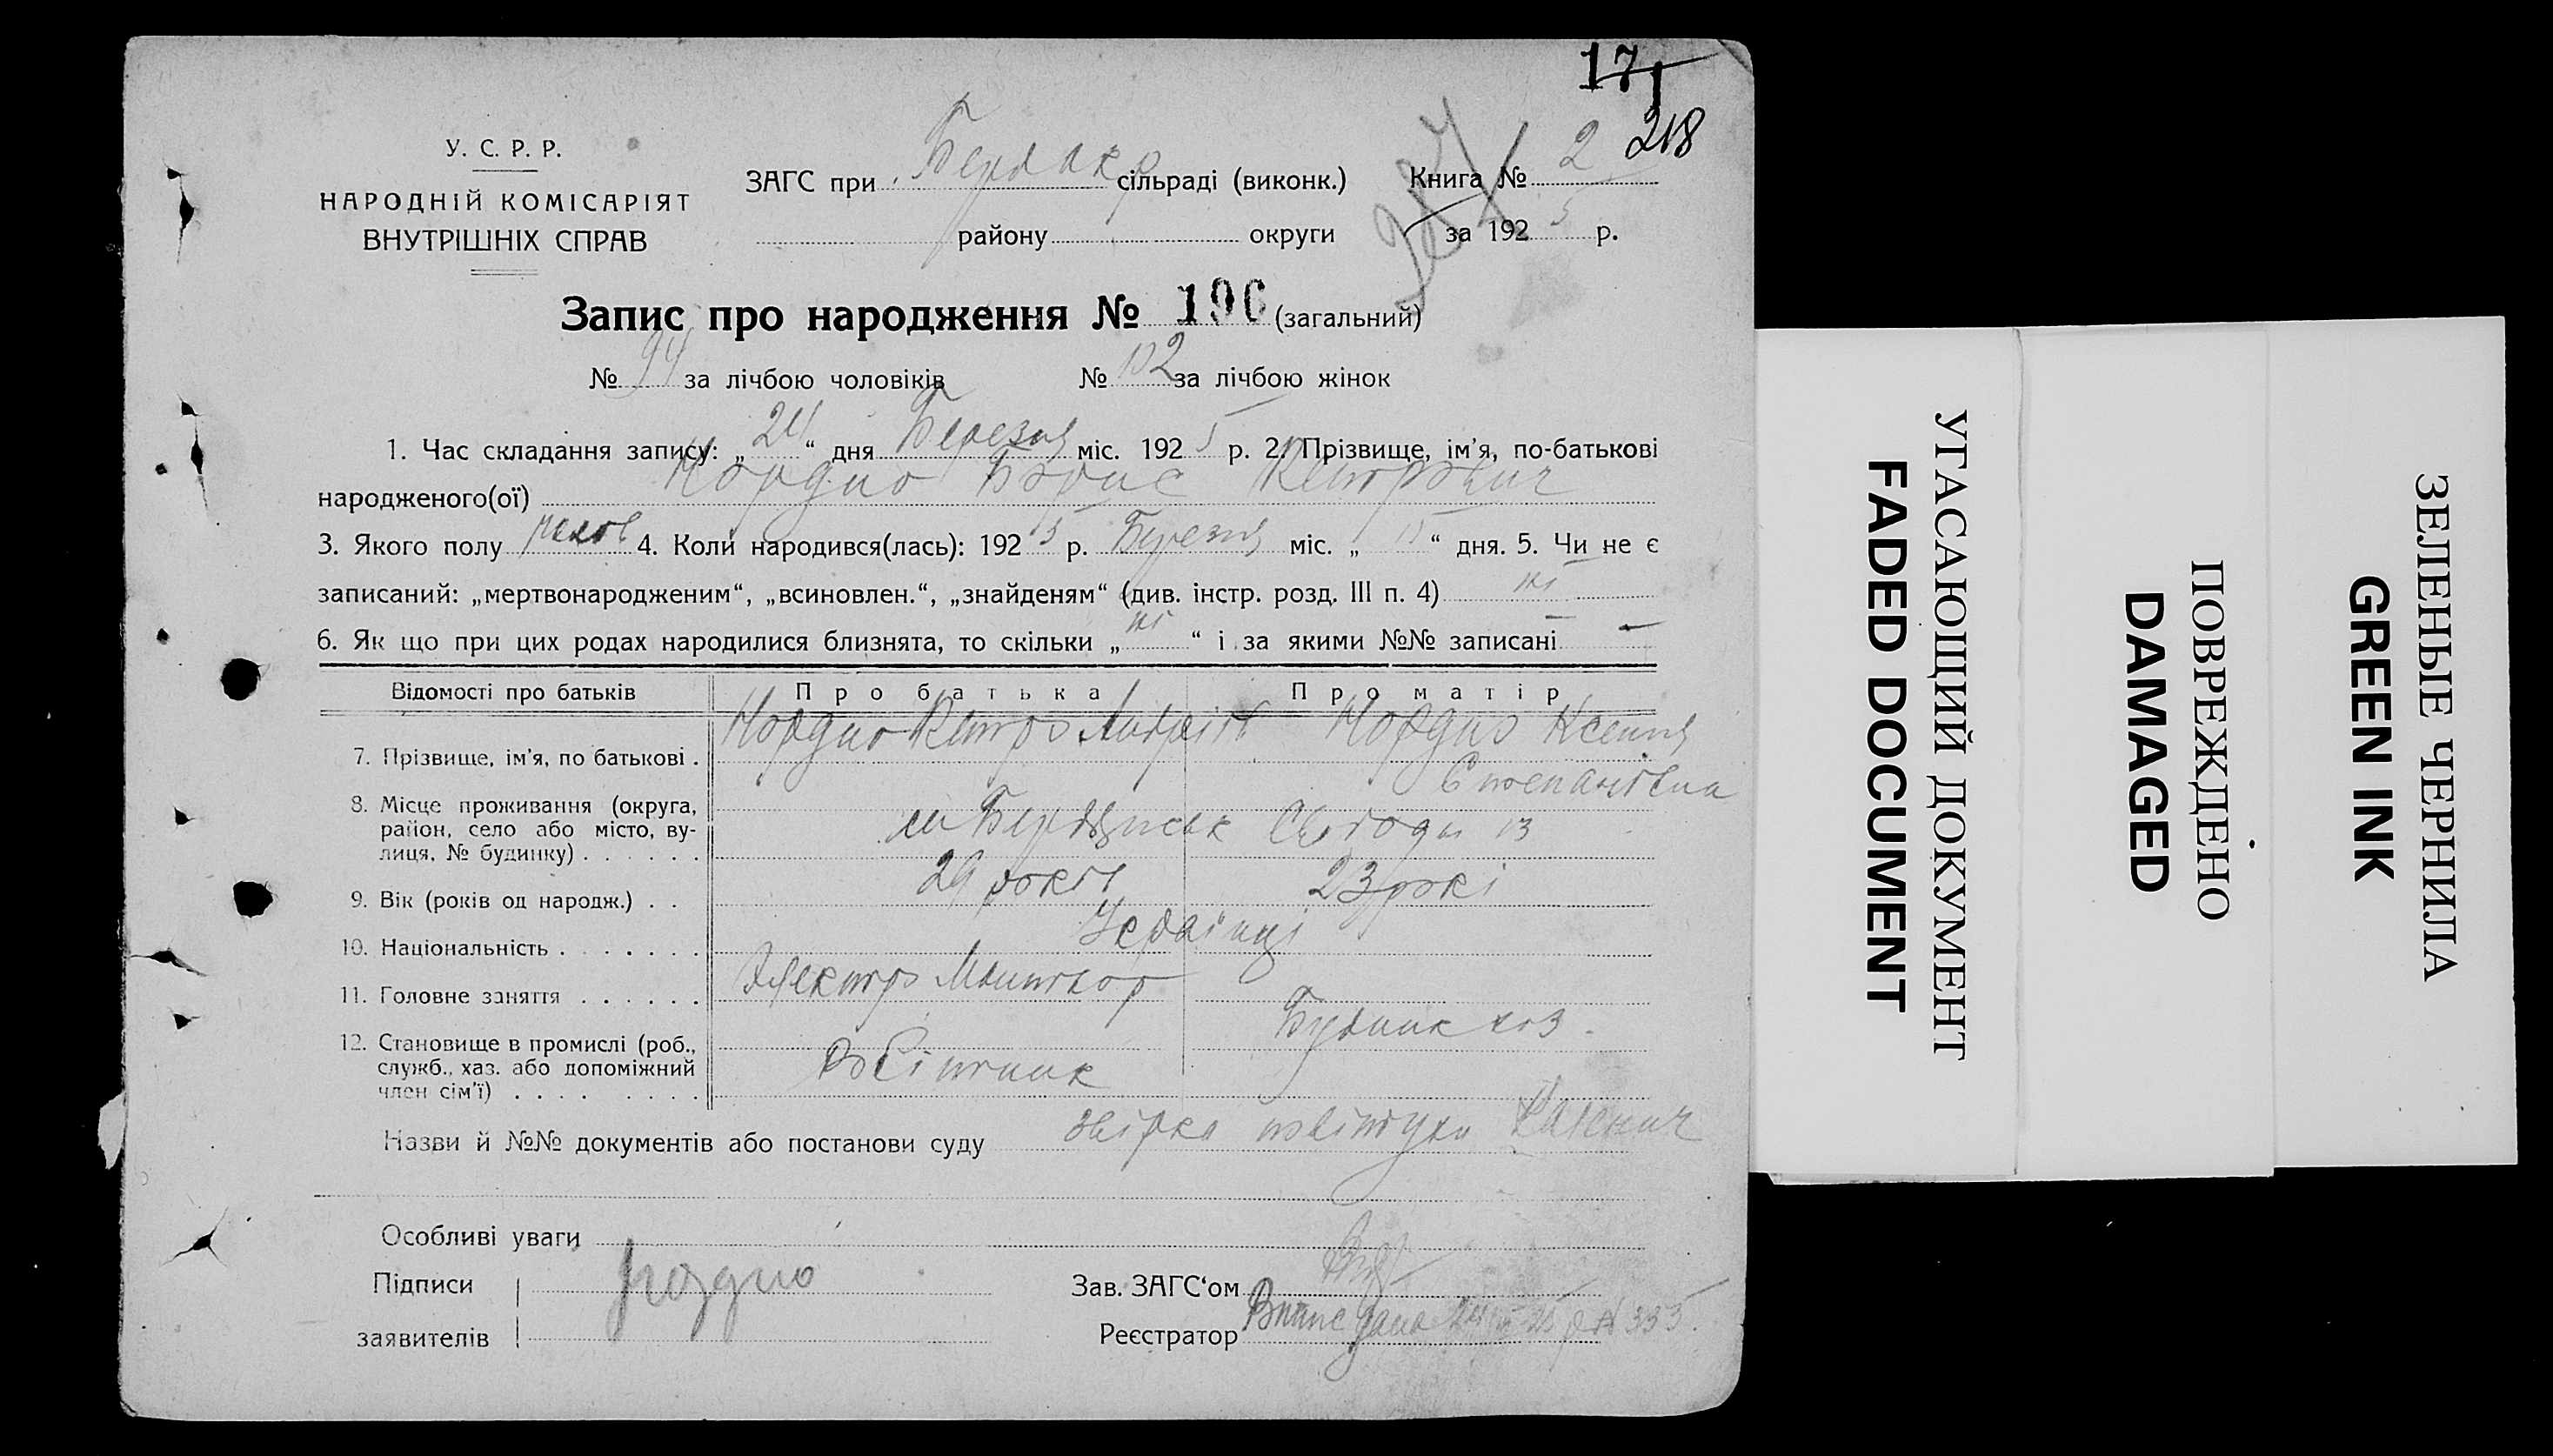 17
218
У. С. Р. Р.
НАРОДНІЙ КОМІСАРІЯТ
ВНУТРІШНІХ СПРАВ
ЗАГС при сільраді (виконк.) Книга № 2
району округи за 1925 р.
Запис про народження № 196 (загальний)
№ 94 за лічбою чоловіків № 102 за лічбою жінок
1. Час складання запису: „24“ дня Березня міс. 1925 р. 2. Прізвище, ім'я, по-батькові
народженого(ої) Борис Петрович
3. Якого полу 4. Коли народився(лась): 1925 р. Березня міс. „15“ дня. 5. Чи не є
записаний: „мертвонародженим“, „всиновлен.“, „знайденям“ (див. інстр. розд. III п. 4) ні
6. Як що при цих родах народилися близнята, то скільки „ні“ і за якими №№ записані —
Відомості про батьків Про батька Про матір
7. Прізвище, ім'я, по батькові . Петро Ксения
Степанівна
8. Місце проживання (округа,
район, село або місто, ву-
лиця, № будинку) . . . . . . Свободи 13
9. Вік (років од народж.) . . 29 років 23 роки
10. Національність . . . . . . . Українці
11. Головне заняття . . . . . . Электро Монтьор
12. Становище в промислі (роб.,
служб., хаз. або допоміжний
член сім'ї) . . . . . . . .
Назви й №№ документів або постанови суду
Особливі уваги
Підписи
заявителів
Зав. ЗАГС'ом
Реєстратор
УГАСАЮЩИЙ ДОКУМЕНТ
FADED DOCUMENT
ПОВРЕЖДЕНО
DAMAGED
ЗЕЛЕНЫЕ ЧЕРНИЛА
GREEN INK